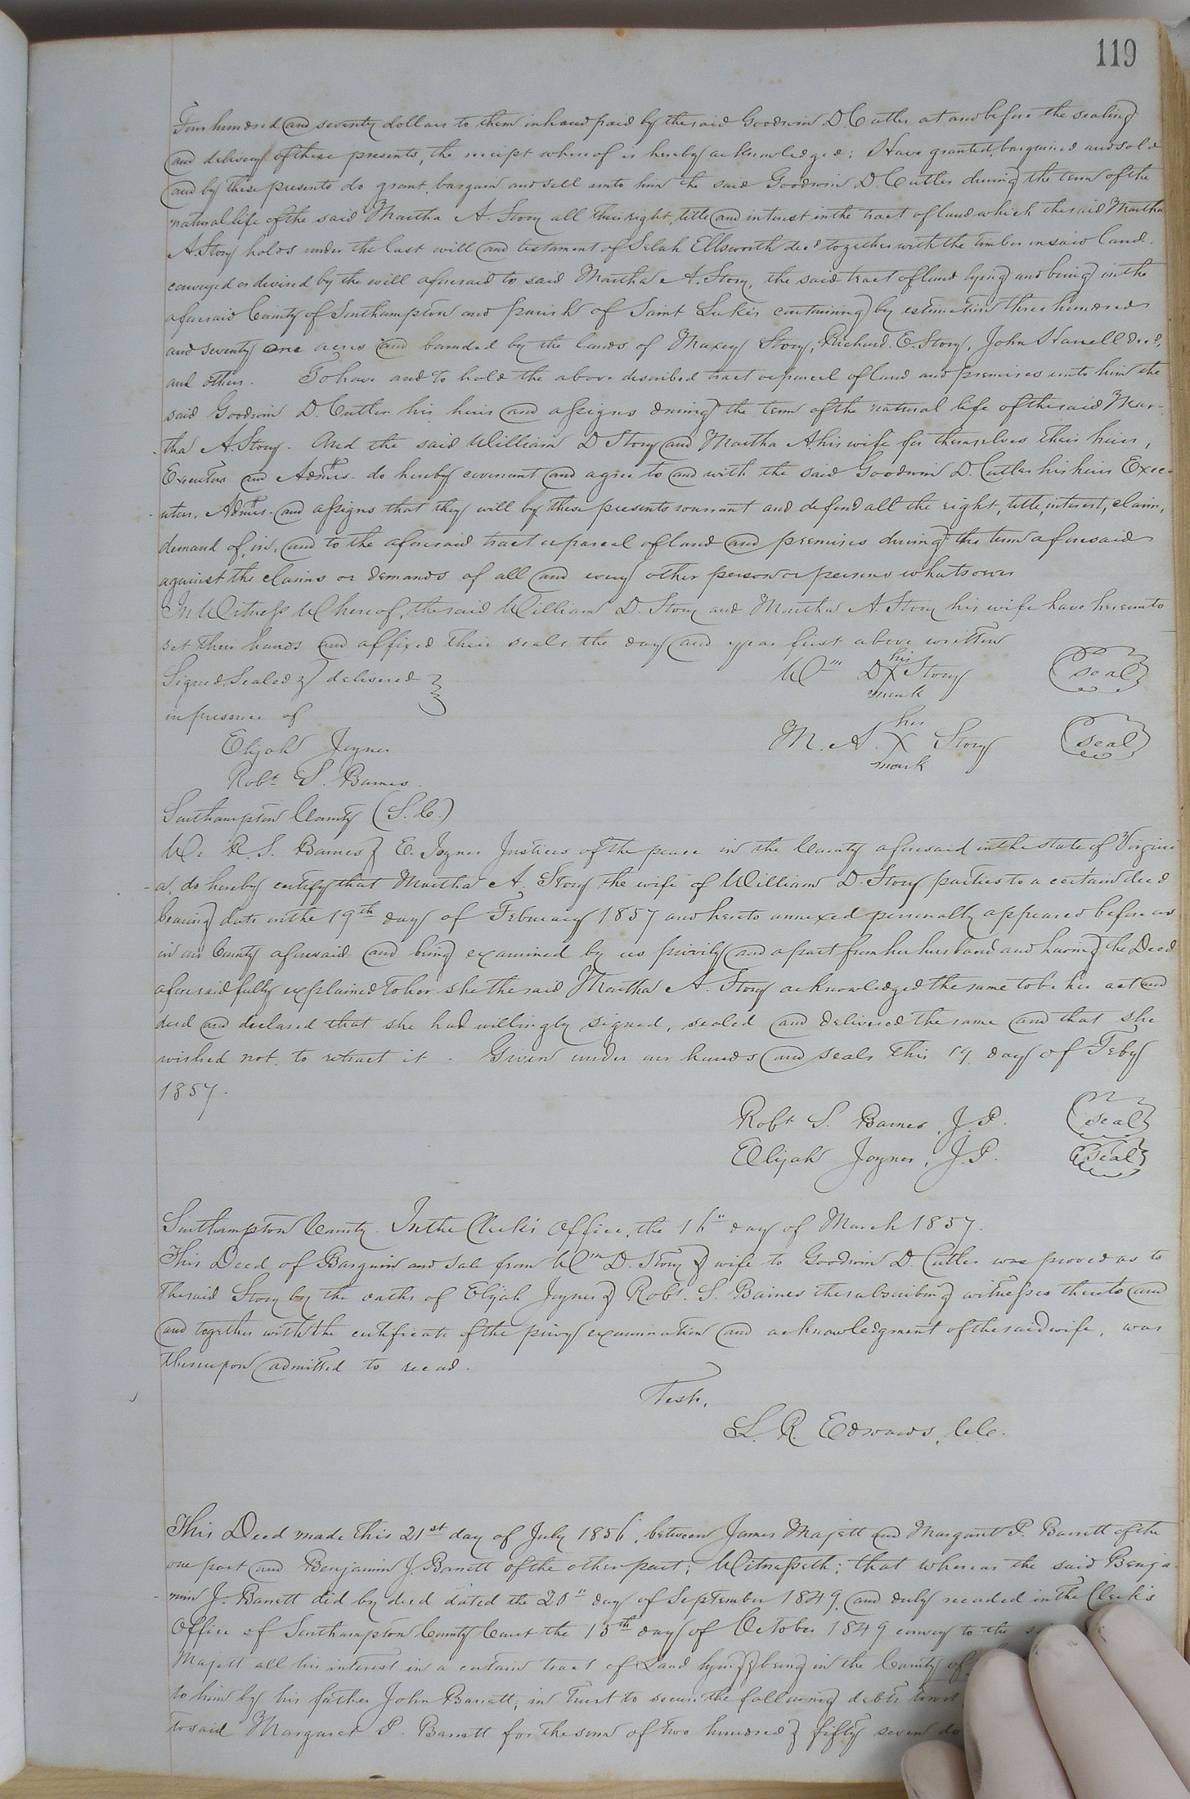 119
Four hundred and seventy dollars to them in hand paid by the said Goodwin D. Cutler at and before the sealing
and delivery of these presents, the receipt whereof is hereby acknowledged; Have granted, bargained and sold
and by these presents do grant, bargain and sell unto him the said Goodwin D. Cutler during the term of the
natural life of the said Martha A. Story all their right, title and interest in the tract of land which the said Martha
A. Story holds under the last will and testament of Selah Ellsworth decd together with the timber in said land
conveyed or devised by the will aforesaid to said Martha A. Story, the said tract of land lying and being in the
aforesaid County of Southampton and parish of Saint Luke's containing by estimation three hundred
and seventy one acres and bounded by the lands of Maxey Story, Richard E. Story, John Harrell decd,
and others. To have and to hold the above described tract or parcel of land and premises unto him the
said Goodwin D. Cutler his heirs and assigns during the term of the natural life of the said Mar-
tha A. Story. And the said William D Story and Martha A his wife for themselves their heirs,
Executors and Admrs. do hereby covenant and agree to and with the said Goodwin D. Cutler his heirs Exec-
utors, Admrs. and assigns that they will by these presents warrant and defend all the right, title, interest, claim,
demand of, in, and to the aforesaid tract or parcel of land and premises during the term aforesaid
against the claims or demands of all and every other person or persons whatsoever
In Witness Whereof, the said William D. Story and Martha A. Story his wife have hereunto
set their hands and affixed their seals the day and year first above written
Signed, Sealed & delivered
in presence of
Elijah Joyner
Robt S. Barnes.
his
Wm D X Story seal
mark
her
M. A. X Story seal
mark
Southampton County (S. C.)
We R. S. Barnes & E. Joyner Justices of the peace in the County aforesaid in the state of Virgini
a, do hereby certify that Martha A. Story the wife of William D. Story parties to a certain deed
bearing date in the 19th day of February 1857 and hereto annexed personally appeared before us
in our County aforesaid and being examined by us privily and apart from her husband and having the Deed
aforesaid fully explained to her she the said Martha A. Story acknowledged the same to be her act and
deed and declared that she had willingly signed, sealed and delivered the same and that she
wished not to retract it. Given under our hands and seals this 19 day of Feby
1857.
Robt S. Barnes, J. P. seal
Elijah Joyner, J. P. seal
Southampton County. In the Clerk's Office, the 16th day of March 1857.
This Deed of Bargain and Sale from Wm D. Story & wife to Goodwin D. Cutler was proved as to
the said Story by the oaths of Elijah Joyner & Robt. S. Barnes the subscribing witnesses thereto and
and together with the certificate of the privy examination and acknowledgment of the said wife, was
thereupon admitted to record.
Test,
L. R. Edwards, C.C.
This Deed made this 21st day of July 1856, between James Majett and Margaret P. Barrett of the
one part and Benjamin J. Barrett of the other part; Witnesseth; that whereas the said Benja-
min J. Barrett did by deed dated the 20th day of September 1849, and duly recorded in the Clerk's
Office of Southampton County Court the 15th day of October 1849 convey to the
Majett all his interest in a certain tract of Land lying & being in the County of
to him by his father John Barrett, in trust to secure the following debts
to said Margaret P. Barrett for the sum of two hundred & fifty seven